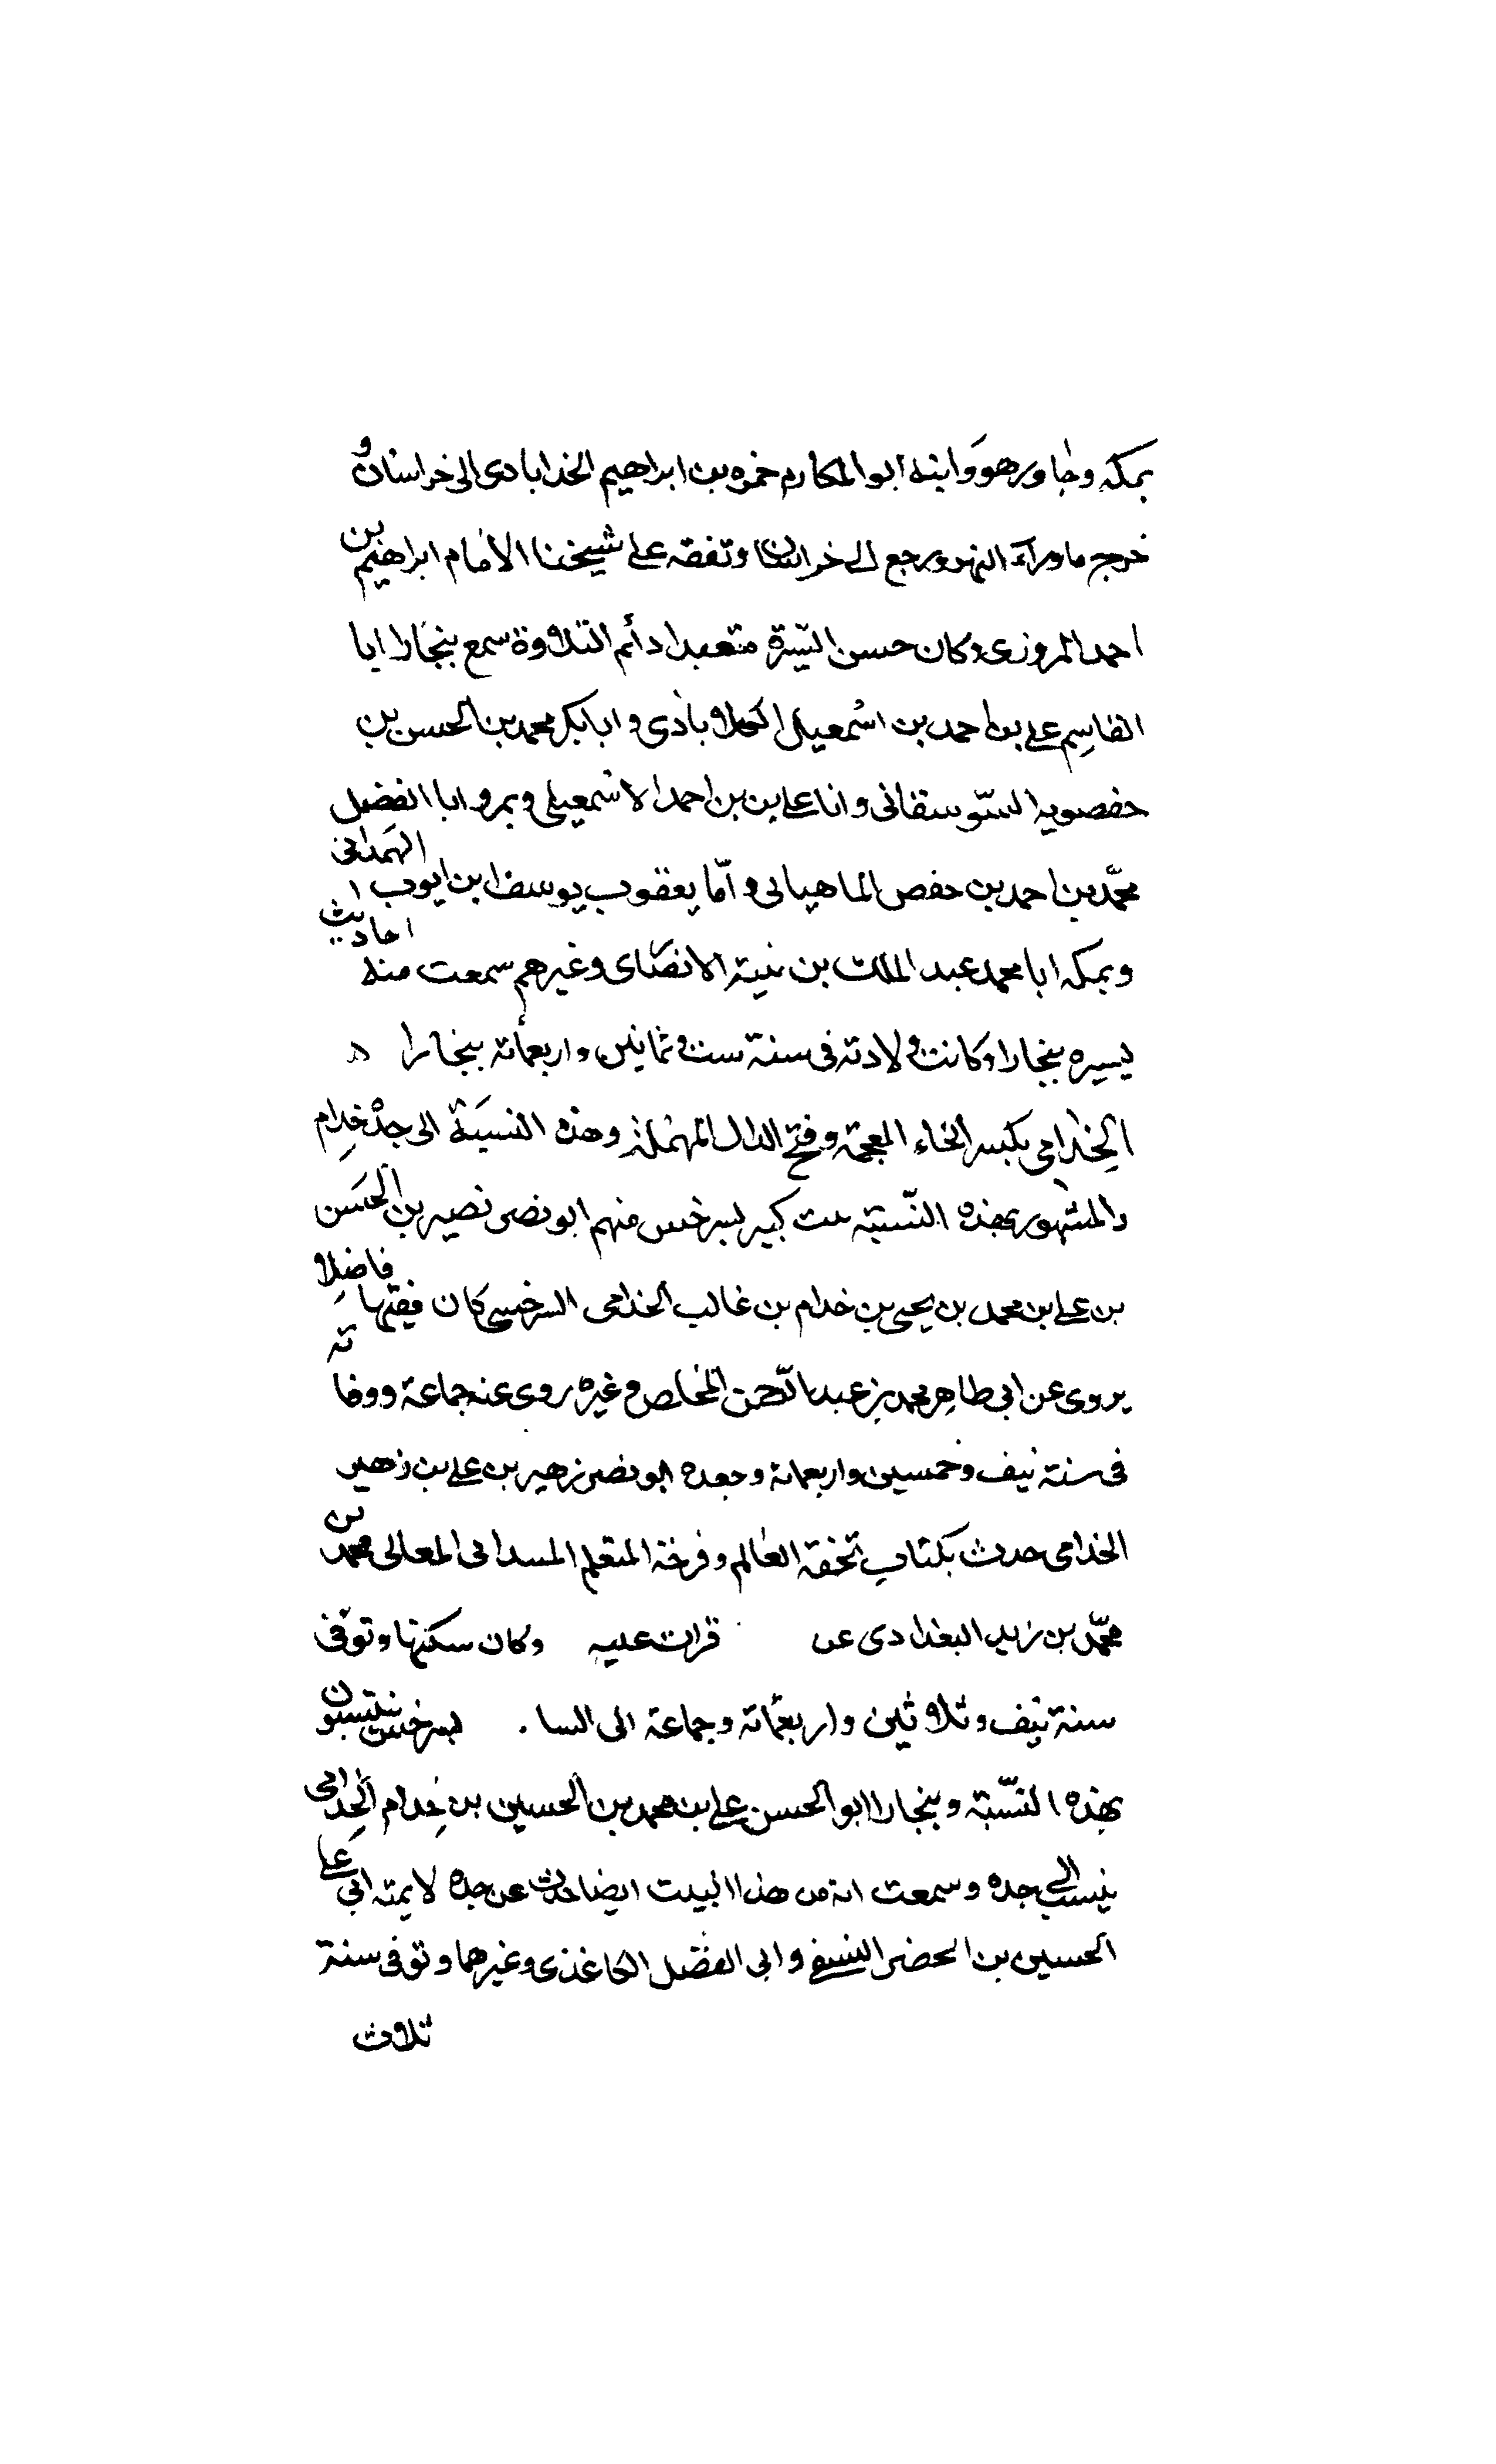 بمكة وجاور هو وابنه ابو المكارم حمزه بن ابراهيم الخدابادى الى خراسان و
خرج ماوراء النهر ورجع الى خراسان وتفقه على شيخنا الامام ابراهيم بن
احمد المروزى وكان حسن السيرة متعبدا دائم التلاوة سمع ببخارا ابا
القاسم على بن احمد بن اسمعيل الكلاباذى وابا بكر محمد بن الحسن بن
حفصويه السوسقانى وانا على بن بن احمد الاسمعيلى وبمرو ابا الفضل
محمد بن احمد بن حفص الماهيانى وأما يعقوب يوسف ابن ايوب الهمدانى
وبمكه ابا محمد عبد الملك بن نبتة الانصاى وغيرهم سمعت منه احاديث
يسيره ببخارا وكانت ولادته فى سنة ست وثمانين واربعمائة ببخارا ه
الخدامى بكسر الخاء المعجمة وفتح الدال المهملة وهذه النسبة الى جد خدام
والمشهور بهذه النسبة بيت كبير بسرخس منهم ابو نصر نصير بن الحسن
بن على بن محمد بن يحيى بن خدام بن غالب الخدامى السرخسى كان فقيها فاضلا
يروى عن ابى طاهر محمد بن عبد الرحمن المخلص وغيره روى عنه جماعة ووفاته
فى سنة نيف وخمسين واربعمائة وحفده ابو نصر زهير بن على بن زهير
الخدامى حدث بكتاب تحفة العالم وفرحة المتعلم المسند ابى المعالى محمد بن
محمد بن زيد البغدادى عن قرات عليه وكان سكنها وتوفى
سنة نيف وثلاثين واربعمائة وجماعة الى السا . بسرخس ينتسبون
بهذه النسبة وببخارا ابو الحسن على بن محمد بن الحسين بن خدام الخدامى
ينسب الى جده وسمعت انه من هذا البيت ايضا حدث عن جده لامه ابى على
الحسين بن الخضر النسفى وابى الفضل الكاغذى وغيرهما وتوفى سنة
ثلاث